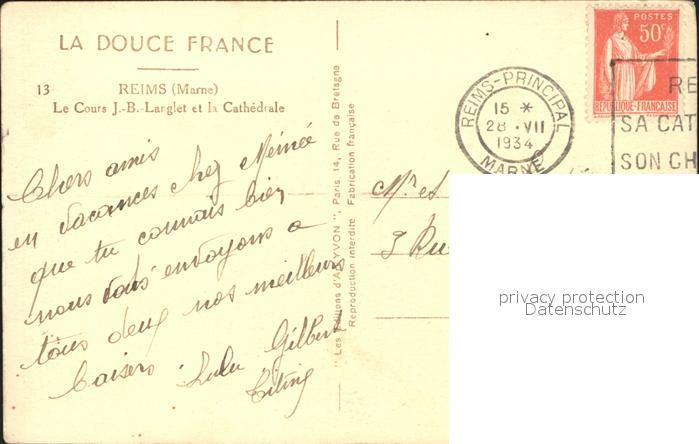 LA DOUCE FRANCE
13 REIMS (Marne)
Le Cours J.-B.-Langlet et la Cathédrale
Chers amis
en vacances chez Mémée
que tu connais bien
nous vous envoyons a
tous deux nos meilleurs
baisers Lulu Gilbert
Titing
" Les Editions d'Art YVON ", Paris 14, Rue de Bretagne
Reproduction interdite Fabrication française
REIMS-PRINCIPAL
15 *
28 · VII
1934
MARNE
POSTES
50c
REPUBLIQUE-FRANÇAISE
RE
SA CAT
SON CH
Mr et
3 Rue
privacy protection
Datenschutz